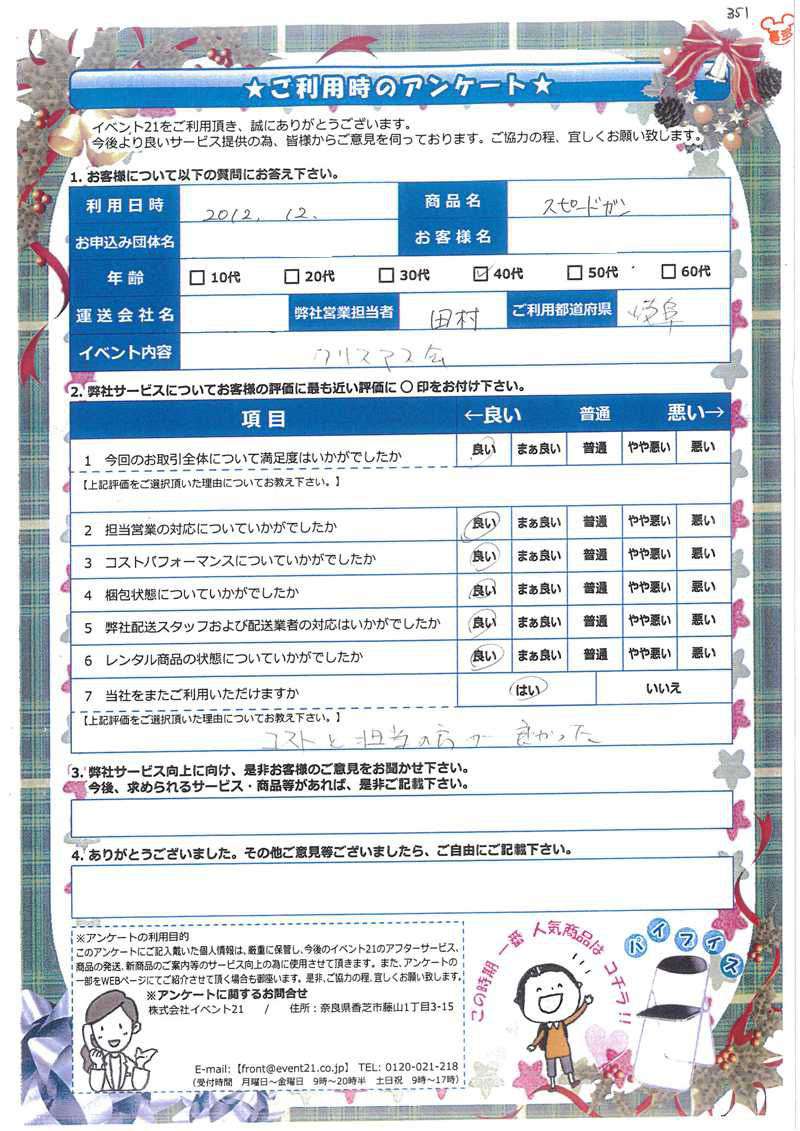 351
★ご利用時のアンケート★
イベント21をご利用頂き、誠にありがとうございます。
今後より良いサービス提供の為、皆様からご意見を伺っております。ご協力の程、宜しくお願い致します。
1. お客様について以下の質問にお答え下さい。
利用日時 2012. 12. 商品名 スピードガン
お申込み団体名 お客様名
年齢 □10代 □20代 □30代 ☑40代 □50代 □60代
運送会社名 弊社営業担当者 田村 ご利用都道府県 岐阜
イベント内容 クリスマス会
2. 弊社サービスについてお客様の評価に最も近い評価に ○ 印をお付け下さい。
項目 ←良い 普通 悪い→
1 今回のお取引全体について満足度はいかがでしたか 良い まぁ良い 普通 やや悪い 悪い
【上記評価をご選択頂いた理由についてお教え下さい。】
2 担当営業の対応についていかがでしたか 良い まぁ良い 普通 やや悪い 悪い
3 コストパフォーマンスについていかがでしたか 良い まぁ良い 普通 やや悪い 悪い
4 梱包状態についていかがでしたか 良い まぁ良い 普通 やや悪い 悪い
5 弊社配送スタッフおよび配送業者の対応はいかがでしたか 良い まぁ良い 普通 やや悪い 悪い
6 レンタル商品の状態についていかがでしたか 良い まぁ良い 普通 やや悪い 悪い
7 当社をまたご利用いただけますか はい いいえ
【上記評価をご選択頂いた理由についてお教え下さい。】
コストと担当の方が良かった
3. 弊社サービス向上に向け、是非お客様のご意見をお聞かせ下さい。
今後、求められるサービス・商品等があれば、是非ご記載下さい。
4. ありがとうございました。その他ご意見等ございましたら、ご自由にご記載下さい。
※アンケートの利用目的
このアンケートにご記入戴いた個人情報は、厳重に保管し、今後のイベント21のアフターサービス、
商品の発送、新商品のご案内等のサービス向上の為に使用させて頂きます。また、アンケートの
一部をWEBページにてご紹介させて頂く場合も御座います。是非、ご協力の程、宜しくお願い致します。
※アンケートに関するお問合せ
株式会社イベント21 / 住所：奈良県香芝市藤山1丁目3-15
E-mail:【front@event21.co.jp】 TEL: 0120-021-218
（受付時間 月曜日～金曜日 9時～20時半 土日祝 9時～17時）
この時期一番人気商品はコチラ!!
パイプイス